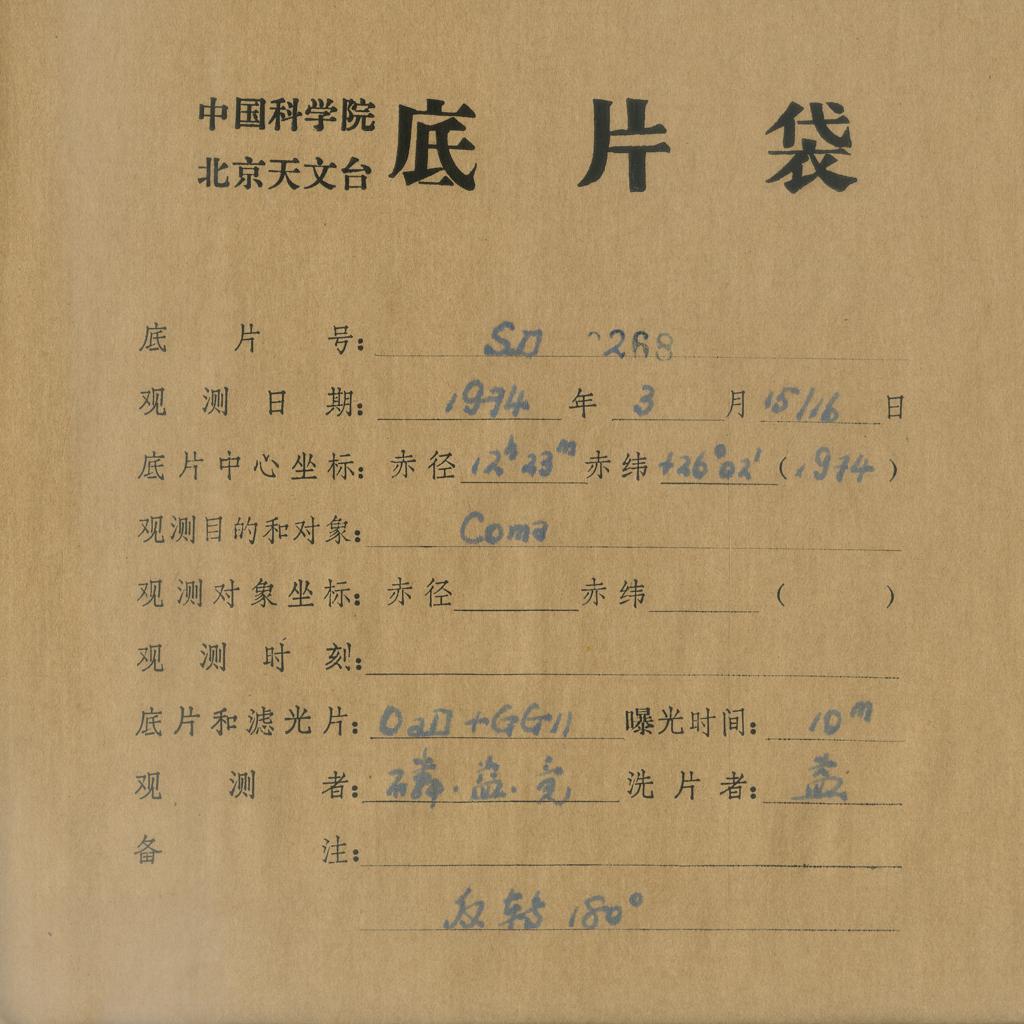 中国科学院
北京天文台
底片袋
底片号: SD 2268
观测日期: 1974 年 3 月 15/16 日
底片中心坐标: 赤径 12h 23m 赤纬 +26°02′ (1974)
观测目的和对象: Coma
观测对象坐标: 赤径 赤纬 ( )
观测时刻:
底片和滤光片: OaD +GG11 曝光时间: 10m
观测者: 磷· 洗片者:
备注:
反转 180°